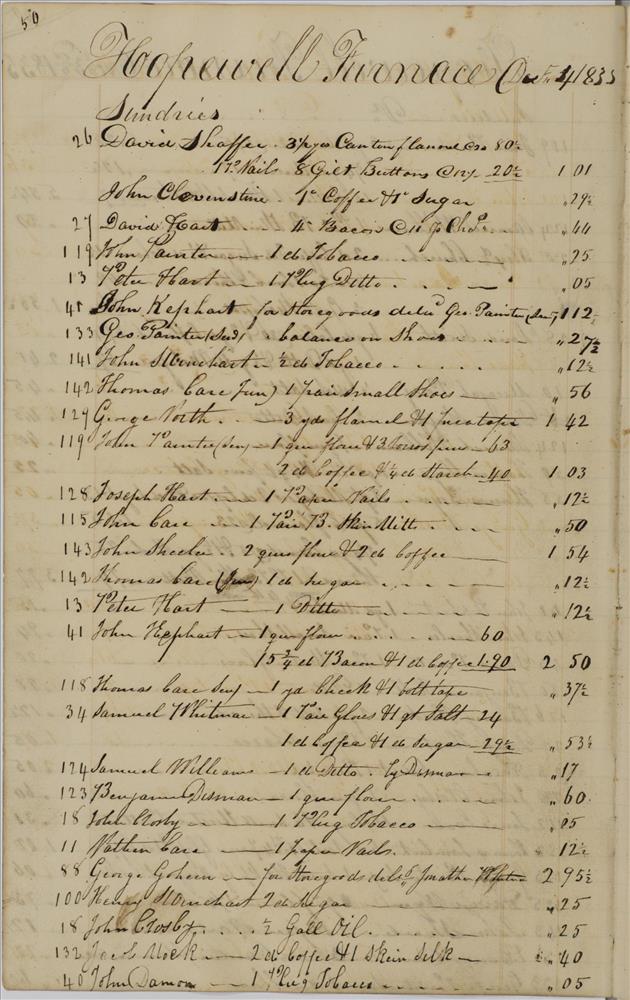 50
Hopewell Furnace 1835
Sundries
26 David Shaffer 3½ yds Canton flannel 80½
Nails 8 Gilt Buttons 20½ 1 01
John Clevenstine 1 Coffee & 1 Sugar " 29½
27 David Hart 4 Bacon " 44
119 John Painter 1 lb Tobacco " 25
13 Peter Hart 1 Plug Ditto " 05
41 John Kephart for Storegoods deliv Geo. Painter (Sen) 1 12
133 Geo. Painter (Sen) balance on Shoes " 27½
141 John ½ lb Tobacco " 12½
142 Thomas Care Jun) 1 pair Small Shoes " 56
127 George North 3 yds flannel & 1 1 42
119 John Painter (Sen) 1 qur flour & 3 63
2 lb Coffee & ¼ lb Starch 40 1 03
128 Joseph Hart 1 Paper Nails " 12½
115 John Care 1 Pair B. Skin Mitts " 50
143 John Sheeler 2 qurs flour & 2 lb Coffee 1 54
142 Thomas Care (Jun) 1 lb Sugar " 12½
13 Peter Hart 1 Ditto " 12½
41 John Kephart 1 qur flour 60
15¾ lb Bacon & 1 lb Coffee 1.90 2 50
118 Thomas Care Sen) 1 yd Check & 1 bolt tape " 37½
34 Samuel Whitman 1 Pair Gloves & 1 qt Salt 24
1 lb Coffee & 1 lb Sugar 29½ " 53½
124 Samuel Williams 1 lb Ditto by Disman " 17
123 Benjamin Disman 1 qur flour " 60
18 John Crosby 1 Plug Tobacco " 05
11 Nathan Care 1 paper Nails " 12½
88 George Goheen for Storegoods deld Jonathan 2 95½
100 Henry 2 lb Sugar " 25
18 John Crosby ½ Gall Oil " 25
132 Jacob Mock 2 lb Coffee & 1 Skein Silk " 40
40 John Damon 1 Plug Tobacco " 05